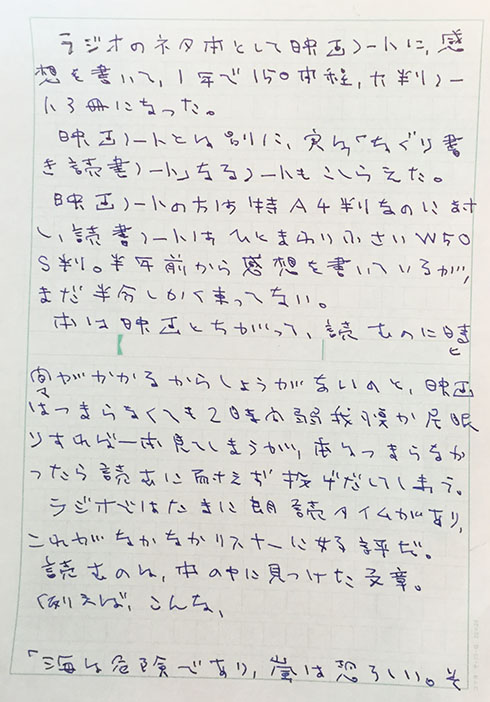 ラジオのネタ本として映画ノートに、感
想を書いて、1年で150本程、大判ノー
ト3冊になった。
映画ノートとは別に、実は「なぐり書
き読書ノート」なるノートもこしらえた。
映画ノートの方は特A4判なのに対
し、読書ノートはひとまわり小さいW50
S判。半年前から感想を書いているが、
まだ半分しかく専ってない。
本は映画とちがって、読むのに時と
間がかかるからしょうがないのと、映画
はつまらなくても2時間弱我慢か居眠
りすれば一本見てしまうが、本はつまらなか
ったら読むに耐えず投げだしてしまう。
ラジオではたまに朗読タイムがあり、
これがなかなかリスナーに好評だ。
読むのは、本の中に見つけた文章。
例えば、こんな、
「海は危険であり、嵐は恐ろしい。そ